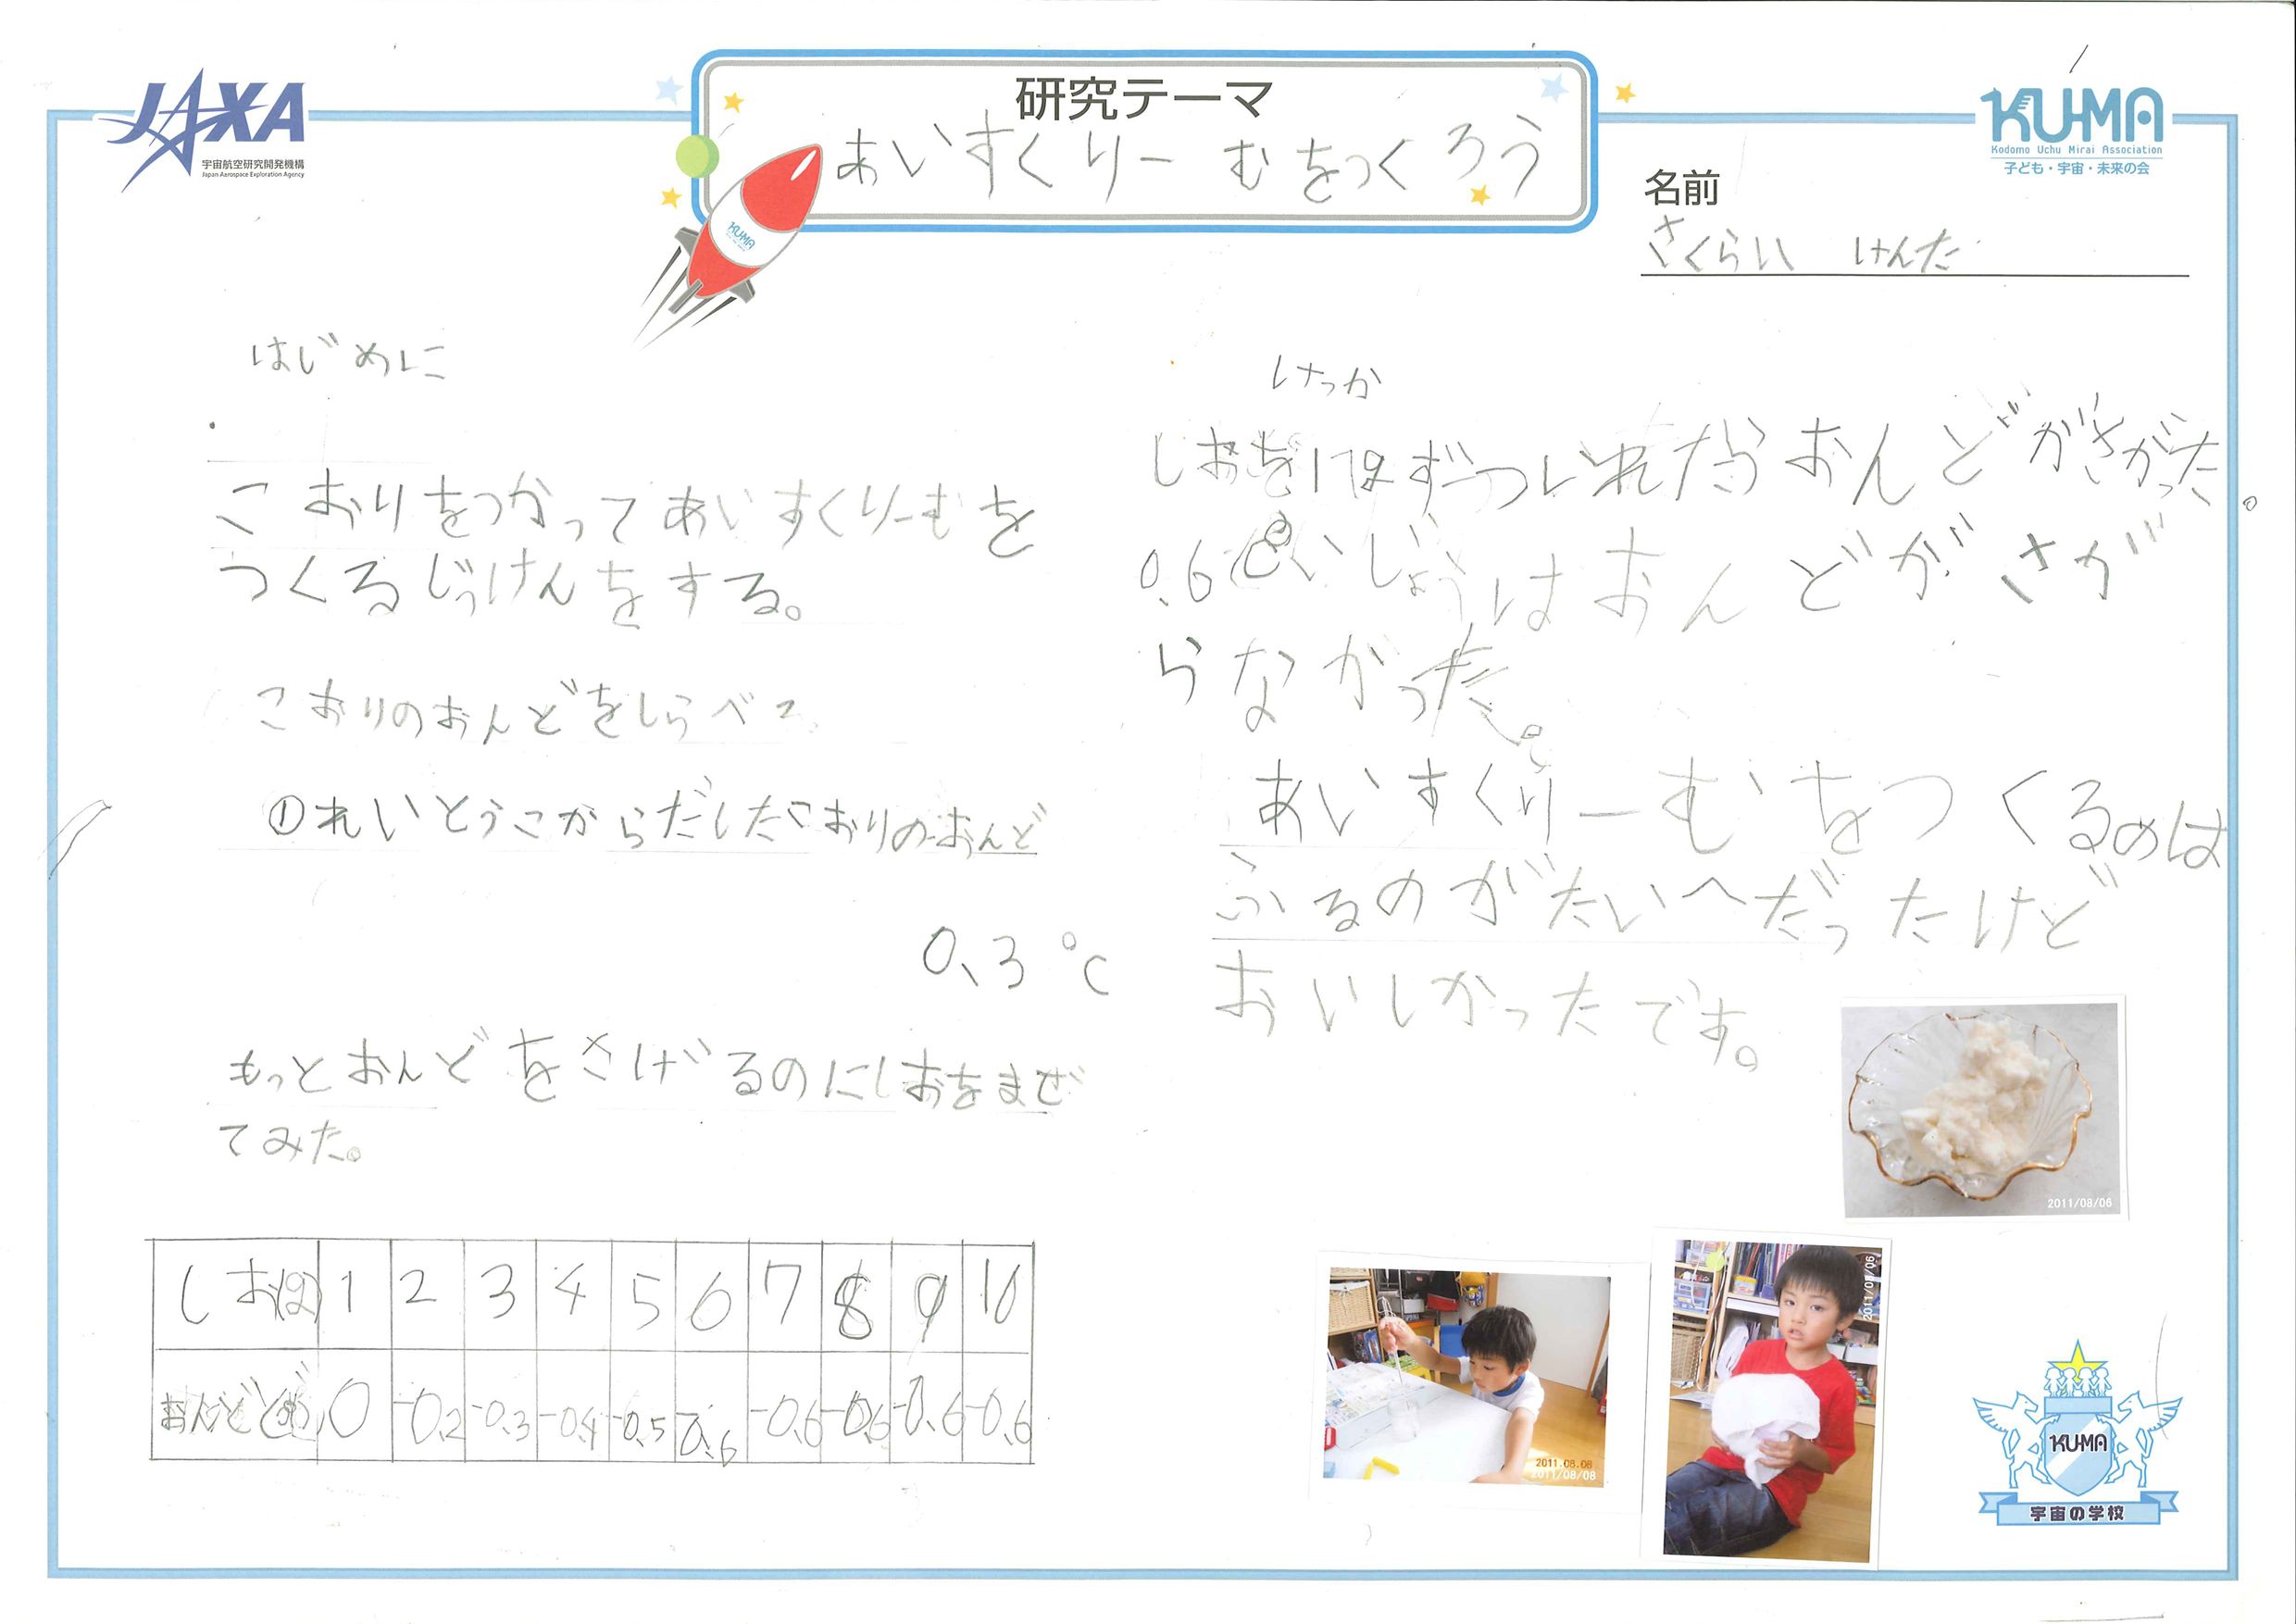 JAXA
宇宙航空研究開発機構
Japan Aerospace Exploration Agency
研究テーマ
あいすくりーむをつくろう
KUMA
KU-MA
Kodomo Uchu Mirai Association
子ども・宇宙・未来の会
名前
さくらい けんた
はじめに
こおりをつかってあいすくりーむを
つくるじっけんをする。
こおりのおんどをしらべて
①れいとうこからだしたこおりのおんど
0.3℃
もっとおんどをさげるのにしおをまぜ
てみた。
しお(は) 1 2 3 4 5 6 7 8 9 10
おんど 0 -0.2 -0.3 -0.4 -0.5 -0.6 -0.6 -0.6 -0.6 -0.6
けっか
しおを1ぱいずついれたらおんどがさがった。
0.6どいじょうはおんどがさが
らなかった。
あいすくりーむをつくるのは
ふるのがたいへだったけど
おいしかったです。
2011/08/06
2011.08.08
2011/08/08
KU-MA
宇宙の学校